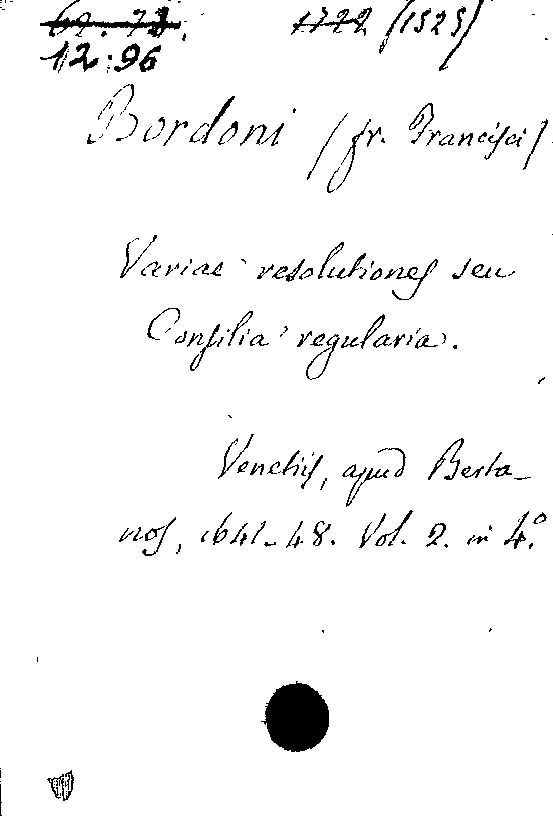 62. 73. 1722 (1525)
12.96
Bordoni (fr. Francisci)
Variae resolutiones seu
Consilia regularia.
Venetiis, apud Berta-
nos, 1641-48. Vol. 2. in 4.°